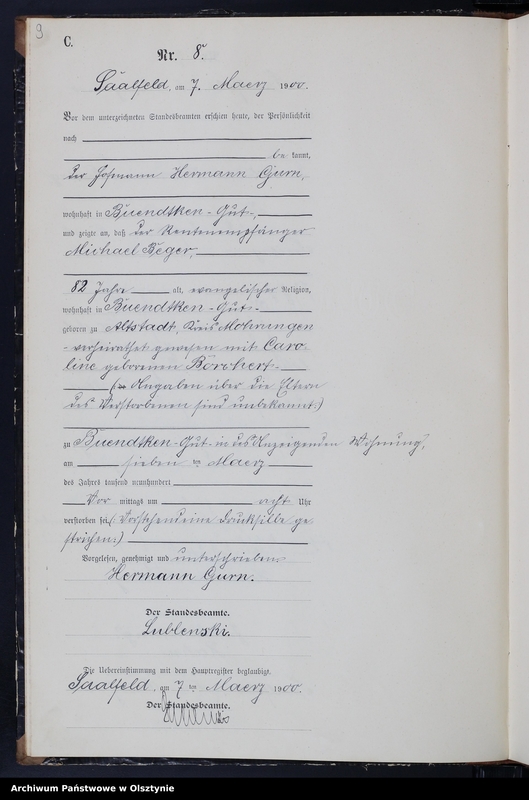 9
C.
Nr. 8.
Saalfeld, am 7. Maerz 1900.
Vor dem unterzeichneten Standesbeamten erschien heute, der Persönlichkeit
nach
be kannt,
der Hofmann Hermann Gurn,
wohnhaft in Buendtken-Gut,
und zeigte an, daß der Rentenempfänger
Michael Beger,
82 Jahre alt, evangelischer Religion,
wohnhaft in Buendtken-Gut
geboren zu Altstadt, Kreis Mohrungen
verheirathet gewesen mit Caro-
line geborenen Borchert
(: Angaben über die Eltern
des Verstorbenen sind unbekannt:)
zu Buendtken-Gut in des Anzeigenden Wohnung,
am sieben ten Maerz
des Jahres tausend neunhundert
Vor mittags um acht Uhr
verstorben sei. (: Vorstehend eine Drucksilbe ge
strichen:)
Vorgelesen, genehmigt und unterschrieben
Hermann Gurn.
Der Standesbeamte.
Lublenski.
Die Uebereinstimmung mit dem Hauptregister beglaubigt.
Saalfeld, am 7 ten Maerz 1900.
Der Standesbeamte.
Archiwum Państwowe w Olsztynie